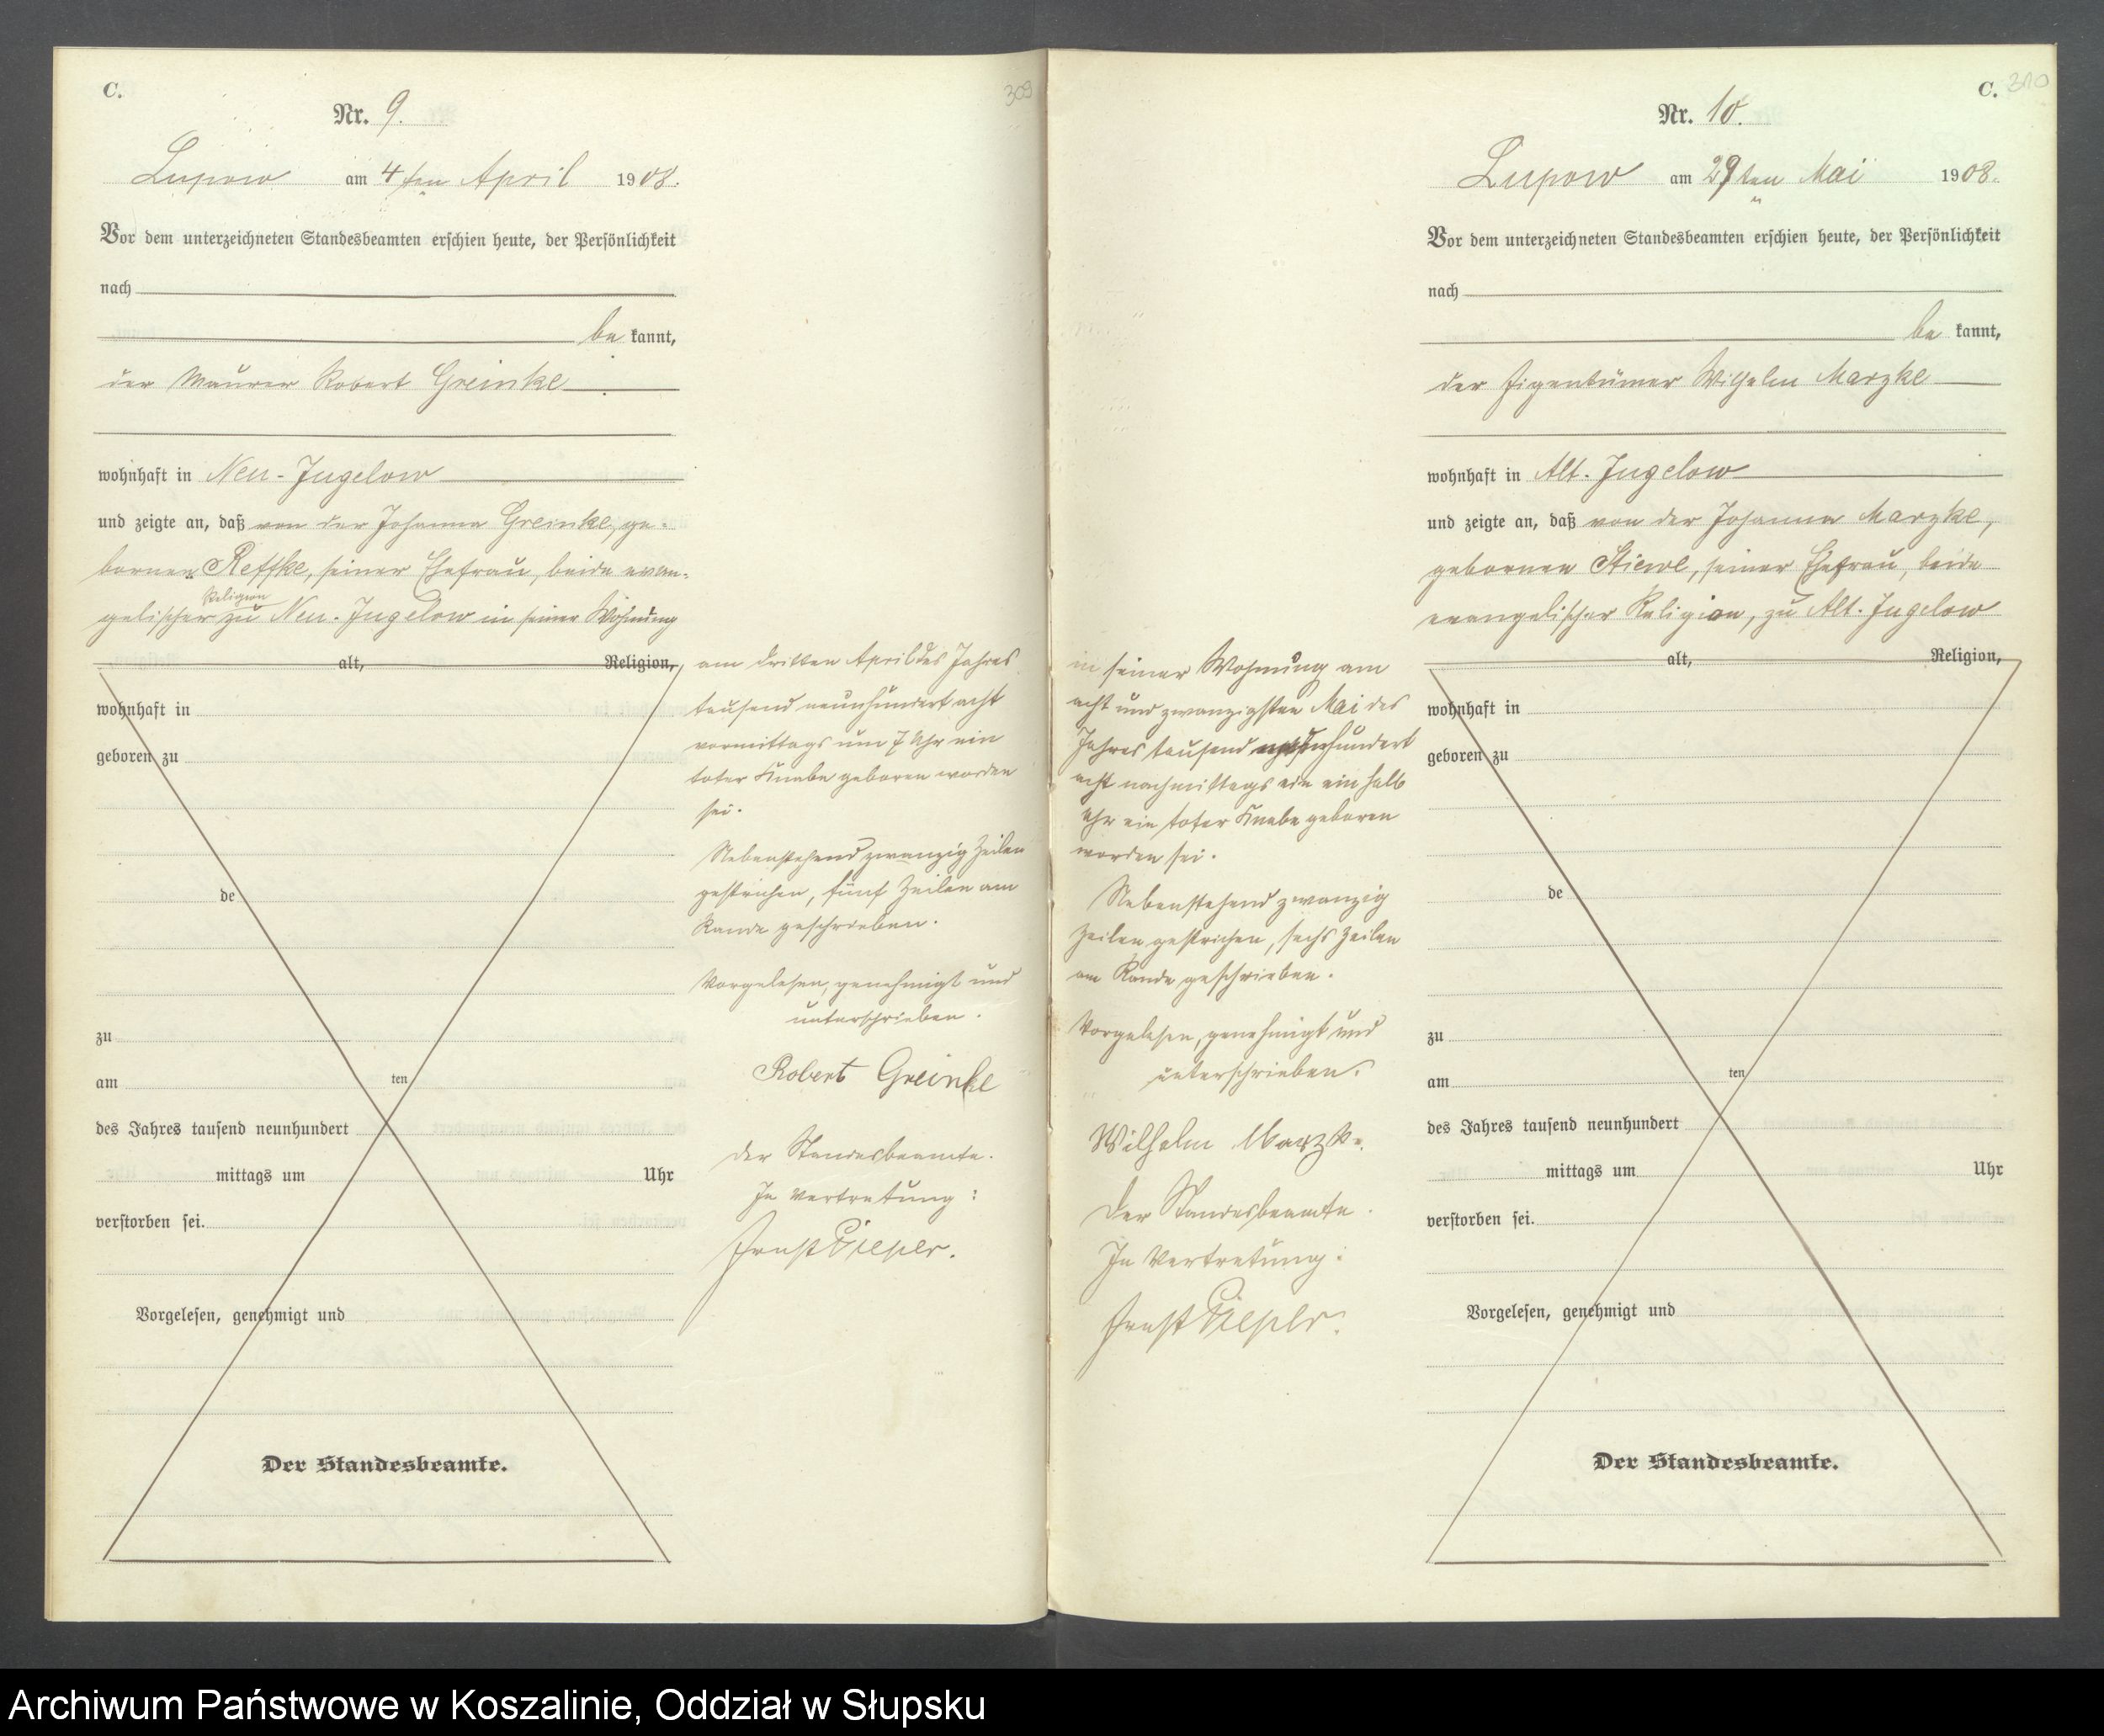 C.
309
Nr. 9.
Lupow am 4ten April 1908.
Vor dem unterzeichneten Standesbeamten erschien heute, der Persönlichkeit
nach
be kannt,
der Maurer Robert Greinke
wohnhaft in Neu-Jugelow
und zeigte an, daß von der Johanna Greinke, ge-
bornen Reffke, seiner Ehefrau, beide evan-
Religion
gelischer zu Neu-Jugelow in seiner Wohnung
alt, Religion,
wohnhaft in
geboren zu
de
zu
am ten
des Jahres tausend neunhundert
mittags um Uhr
verstorben sei.
Vorgelesen, genehmigt und
Der Standesbeamte.
am dritten April des Jahres
tausend neunhundert acht
vormittags um 7 Uhr ein
toter Knabe geboren worden
sei.
Nebenstehend zwanzig Zeilen
gestrichen, fünf Zeilen am
Rande geschrieben.
Vorgelesen, genehmigt und
unterschrieben.
Robert Greinke
Der Standesbeamte.
In Vertretung:
Ernst Pieper.
C. 310
Nr. 10.
Lupow am 29ten Mai 1908.
Vor dem unterzeichneten Standesbeamten erschien heute, der Persönlichkeit
nach
be kannt,
der Eigentümer Wilhelm Marzke
wohnhaft in Alt-Jugelow
und zeigte an, daß von der Johanna Marzke,
gebornen Stiewe, seiner Ehefrau, beide
evangelischer Religion, zu Alt-Jugelow
in seiner Wohnung am
acht und zwanzigsten Mai des
Jahres tausend neunhundert
acht nachmittags ein halb
Uhr ein toter Knabe geboren
worden sei.
Nebenstehend zwanzig
Zeilen gestrichen, sechs Zeilen
am Rande geschrieben.
Vorgelesen, genehmigt und
unterschrieben.
Wilhelm Marzke
Der Standesbeamte.
In Vertretung:
Ernst Pieper.
alt, Religion,
wohnhaft in
geboren zu
de
zu
am ten
des Jahres tausend neunhundert
mittags um Uhr
verstorben sei.
Vorgelesen, genehmigt und
Der Standesbeamte.
Archiwum Państwowe w Koszalinie, Oddział w Słupsku